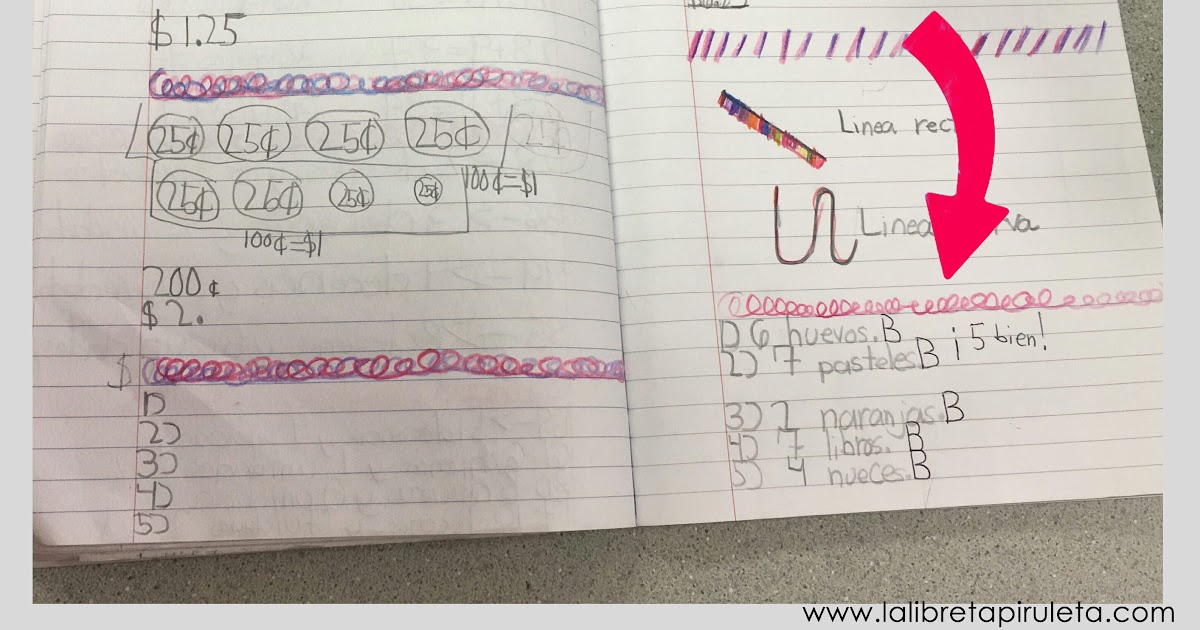 $1.25
25¢ 25¢ 25¢ 25¢ 25¢
25¢ 25¢ 25¢ 25¢ 100¢=$1
100¢=$1
200¢
$2.
$
1)
2)
3)
4)
5)
Linea rec
Linea va
1) 6 huevos. B
2) 7 pasteles B ¡5 bien!
3) 2 naranjas. B
4) 7 libros. B
5) 4 nueces. B
www.lalibretapiruleta.com